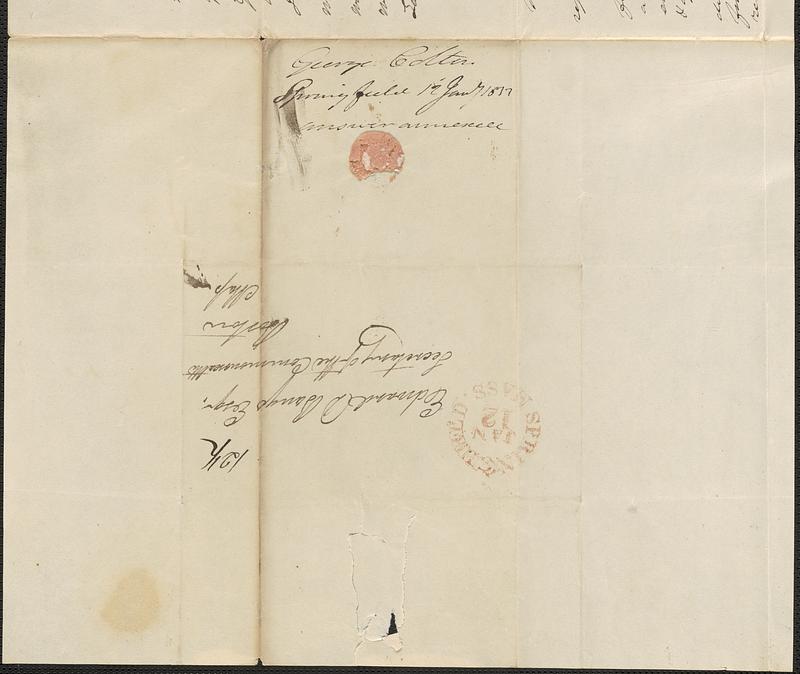 George Colton
Springfield 12 Jany 1833
answer annexed
12 1/2
Edward D Bangs Esqr,
Secretary of the Commonwealth
Boston
Mass.
SPRINGFIELD. MASS
JAN
12